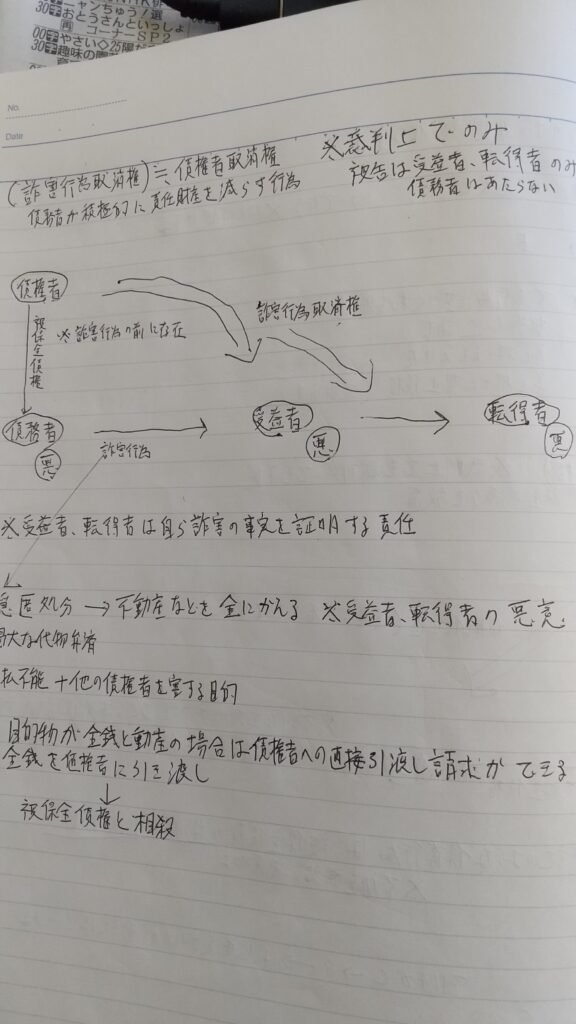 30 ニャンちゅう!選
30 おとうさんといっしょ
再 コーナーSP2
00 やさい◇25陽だ
30 趣味の園
No.
Date
(詐害行為取消権)≒債権者取消権
債務者が積極的に責任財産を減らす行為
※裁判上でのみ
被告は受益者、転得者のみ
債務者はあたらない
債権者
被保全債権
※詐害行為の前に存在
詐害行為取消権
債務者
悪
詐害行為
受益者
悪
転得者
悪
※受益者、転得者は自ら詐害の事実を証明する責任
処分→不動産などを金にかえる ※受益者、転得者の悪意
大な代物弁済
払不能+他の債権者を害する目的
目的物が金銭と動産の場合は債権者への直接引渡し請求ができる
金銭を債権者に引き渡し
↓
被保全債権と相殺